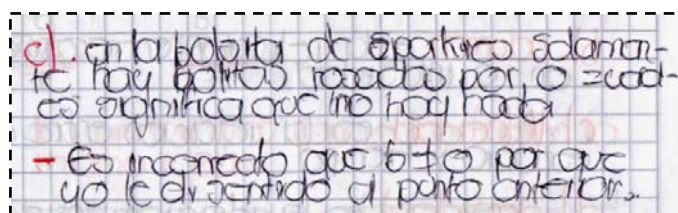 c). en la bolsita de Spartacco Solamen-
te hay bolitas rosadas por, o
es significa que no hay nada
- Es incorrecto que 6 ≠ 0 por que
yo le di sentido al punto anterior.